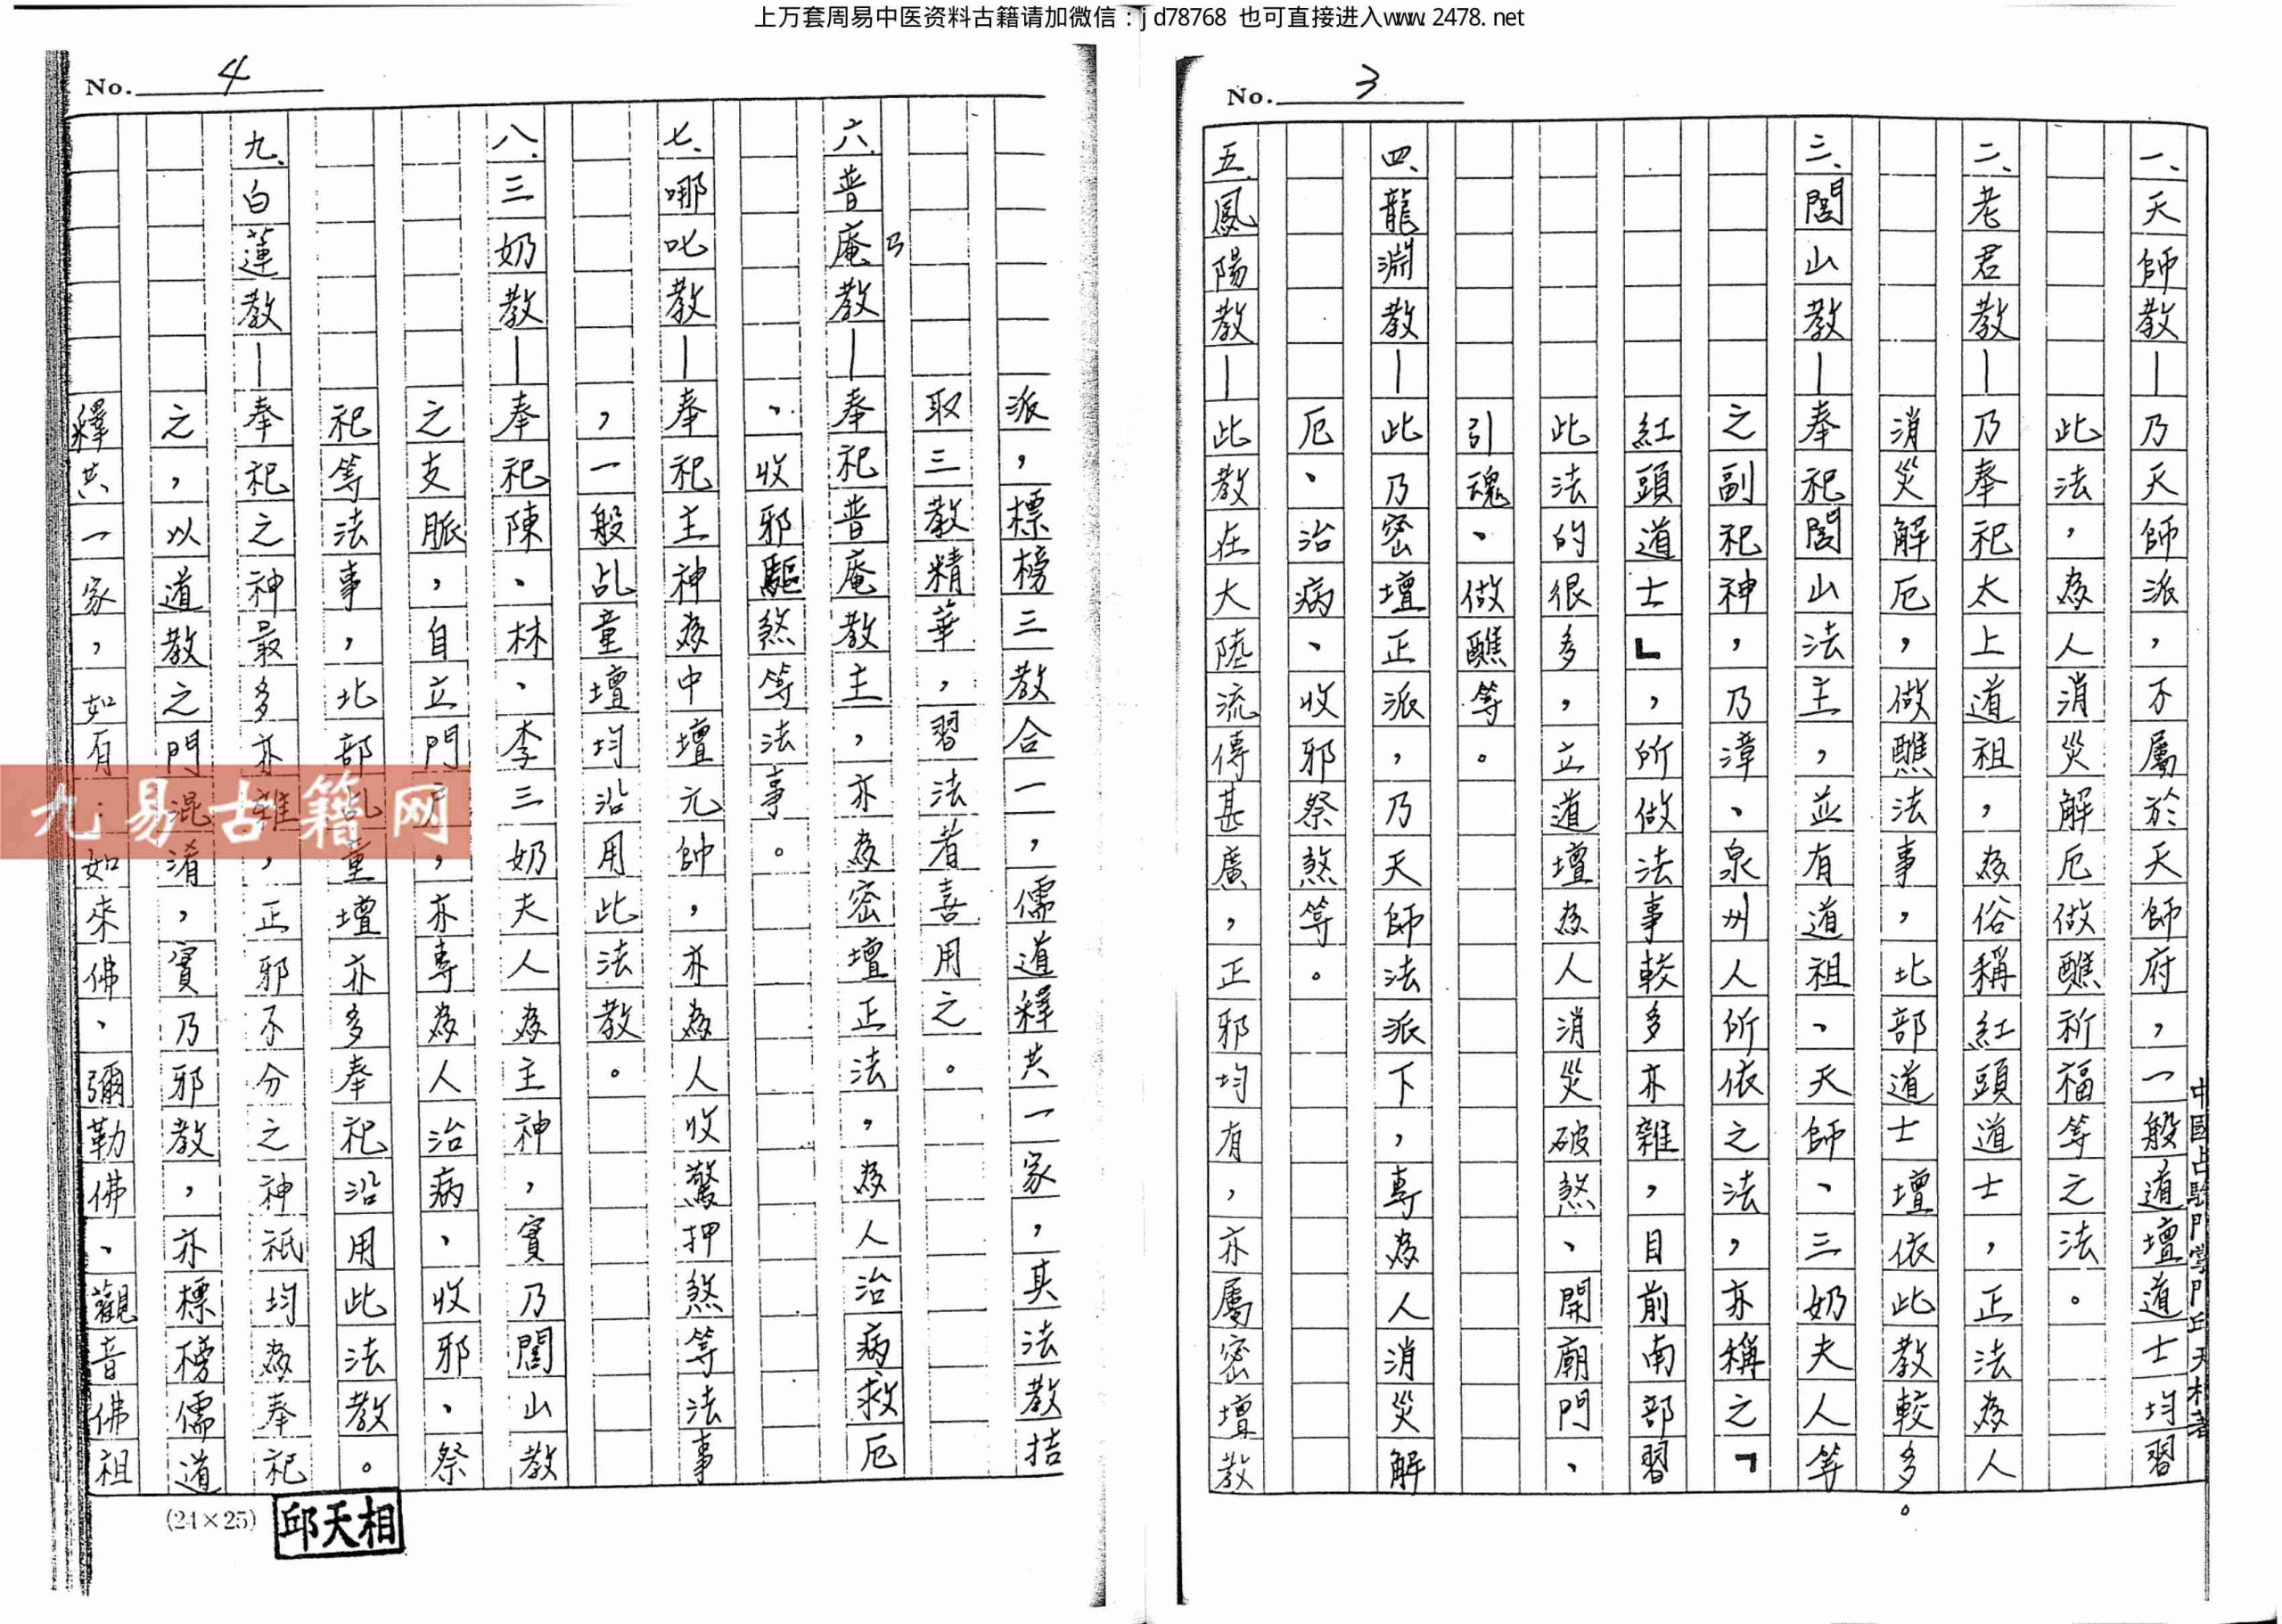 上万套周易中医资料古籍请加微信：jd78768 也可直接进入www.2478.net
No. 3
中國占驗門掌門邱天相著
一、天師教—乃天師派，不屬於天師府，一般道壇道士均習
此法，為人消災解厄做醮祈福等之法。
二、老君教—乃奉祀太上道祖，為俗稱紅頭道士，正法為人
消災解厄，做醮法事，北部道士壇依此教較多。
三、閭山教—奉祀閭山法主，並有道祖、天師、三奶夫人等
之副祀神，乃漳、泉州人所依之法，亦稱之「
紅頭道士」，所做法事較多亦雜，目前南部習
此法的很多，立道壇為人消災破煞、開廟門、
引魂、做醮等。
四、龍淵教—此乃密壇正派，乃天師法派下，專為人消災解
厄、治病、收邪祭煞等。
五、鳳陽教—此教在大陸流傳甚廣，正邪均有，亦屬密壇教
No. 4
派，標榜三教合一，儒道釋共一家，其法教拮
取三教精華，習法者喜用之。
六、普庵教—奉祀普庵教主，亦為密壇正法，為人治病救厄
乃
、收邪驅煞等法事。
七、哪叱教—奉祀主神為中壇元帥，亦為人收驚押煞等法事
，一般乩童壇均沿用此法教。
八、三奶教—奉祀陳、林、李三奶夫人為主神，實乃閭山教
之支脈，自立門戶，亦專為人治病、收邪、祭
祀等法事，北部乩童壇亦多奉祀沿用此法教。
九、白蓮教—奉祀之神最多亦雜，正邪不分之神祇均為奉祀
之，以道教之門混淆，實乃邪教，亦標榜儒道
釋共一家，如有：如來佛、彌勒佛、觀音佛祖
(24×25)
邱天相
九易古籍网